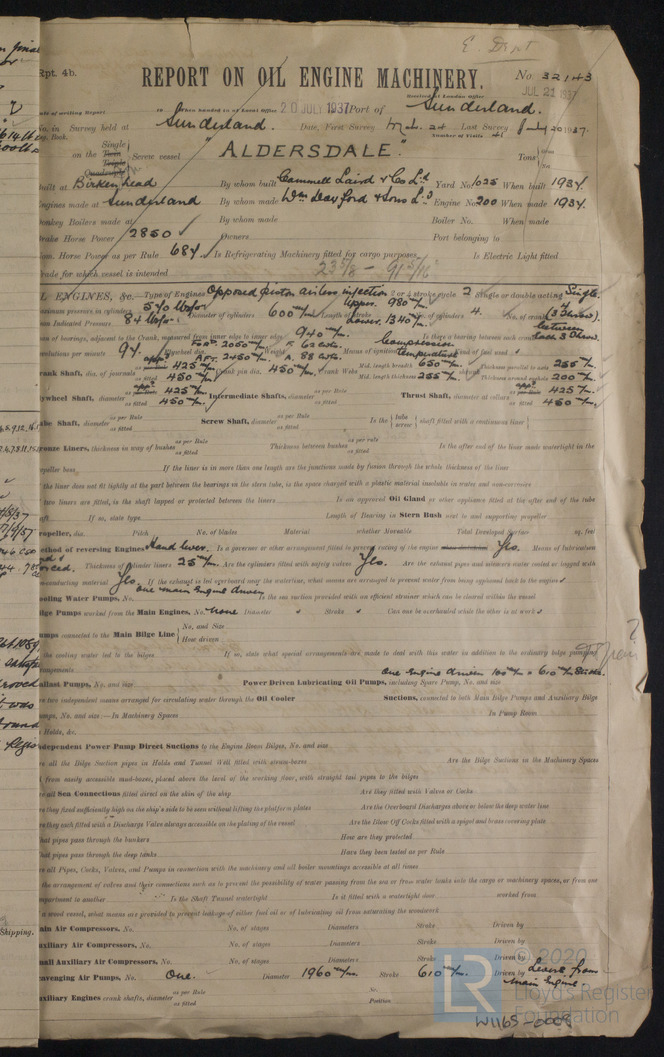 E. Dept
Rpt. 4b.
REPORT ON OIL ENGINE MACHINERY.
No 32143
Received at London Office
JUL 21 1937
Date of writing Report
When handed in at Local Office 20 JULY 1937 Port of Sunderland.
No. in Survey held at Sunderland. Date, First Survey Last Survey 1937.
Number of Visits 41
on the Single Twin Triple Quadruple Screw vessel "ALDERSDALE". Tons
Built at Birkenhead By whom built Cammell Laird & Co Ld Yard No. 1025 When built 1937.
Engines made at Sunderland By whom made Wm Doxford & Sons Ld Engine No. 200 When made 1937.
Donkey Boilers made at By whom made Boiler No. When made
Brake Horse Power 2850 Owners Port belonging to
Nom. Horse Power as per Rule 687 Is Refrigerating Machinery fitted for cargo purposes Is Electric Light fitted
Trade for which vessel is intended 23 5/8 - 91 5/16
OIL ENGINES, &c.—Type of Engines Opposed piston airless injection 2 or 4 stroke cycle 2 Single or double acting Single.
Maximum pressure in cylinders Diameter of cylinders 600 m/m. Length of stroke Upper 980 m/m Lower 1340 m/m. No. of cylinders 4. No. of cranks 4 (3 throws).
Mean Indicated Pressure
Span of bearings, adjacent to the crank, measured from inner edge to inner edge 940 m/m. Is there a bearing between each crank between each 3 throws.
Revolutions per minute 94. Flywheel dia. Weight Means of ignition Compression Temperature Kind of fuel used
Crank Shaft, dia. of journals as per Rule appd 425 m/m as fitted 450 m/m Crank pin dia. 450 m/m. Crank Webs Mid. length breadth 650 m/m. Mid. length thickness 255 m/m. Thickness parallel to axis 255 m/m. Thickness around eyehole 200 m/m.
Flywheel Shaft, diameter as per Rule appd 425 m/m. as fitted 450 m/m. Intermediate Shafts, diameter as per Rule as fitted Thrust Shaft, diameter at collars as per Rule appd 425 m/m. as fitted 450 m/m.
Tube Shaft, diameter as per Rule as fitted Screw Shaft, diameter as per Rule as fitted Is the tube screw shaft fitted with a continuous liner
Bronze Liners, thickness in way of bushes as per Rule as fitted Thickness between bushes as per rule as fitted Is the after end of the liner made watertight in the
propeller boss If the liner is in more than one length are the junctions made by fusion through the whole thickness of the liner
If the liner does not fit tightly at the part between the bearings in the stern tube, is the space charged with a plastic material insoluble in water and non-corrosive
If two liners are fitted, is the shaft lapped or protected between the liners Is an approved Oil Gland or other appliance fitted at the after end of the tube
shaft If so, state type Length of Bearing in Stern Bush next to and supporting propeller
Propeller, dia. Pitch No. of blades Material whether Moveable Total Developed Surface sq. feet
Method of reversing Engines Hand lever. Is a governor or other arrangement fitted to prevent racing of the engine Yes. Means of lubrication
Forced. Thickness of cylinder liners 25 m/m. Are the cylinders fitted with safety valves Yes. Are the exhaust pipes and silencers water cooled or lagged with
non-conducting material Yes. If the exhaust is led overboard near the waterline, what means are arranged to prevent water from being syphoned back to the engine
Cooling Water Pumps, No. One main engine driven Is the sea suction provided with an efficient strainer which can be cleared within the vessel
Bilge Pumps worked from the Main Engines, No. None Diameter Stroke Can one be overhauled while the other is at work
Pumps connected to the Main Bilge Line No. and Size How driven
Is the cooling water led to the bilges If so, state what special arrangements are made to deal with this water in addition to the ordinary bilge pumping
arrangements One engine driven
Ballast Pumps, No. and size Power Driven Lubricating Oil Pumps, including Spare Pump, No. and size
Are two independent means arranged for circulating water through the Oil Cooler Suctions, connected to both Main Bilge Pumps and Auxiliary Bilge
Pumps, No. and size:—In Machinery Spaces In Pump Room
In Holds, &c.
Independent Power Pump Direct Suctions to the Engine Room Bilges, No. and size
Are all the Bilge Suction pipes in Holds and Tunnel Well fitted with strum-boxes Are the Bilge Suctions in the Machinery Spaces
led from easily accessible mud-boxes, placed above the level of the working floor, with straight tail pipes to the bilges
Are all Sea Connections fitted direct on the skin of the ship Are they fitted with Valves or Cocks
Are they fixed sufficiently high on the ship's side to be seen without lifting the platform plates Are the Overboard Discharges above or below the deep water line
Are they each fitted with a Discharge Valve always accessible on the plating of the vessel Are the Blow Off Cocks fitted with a spigot and brass covering plate
What pipes pass through the bunkers How are they protected
What pipes pass through the deep tanks Have they been tested as per Rule
Are all Pipes, Cocks, Valves, and Pumps in connection with the machinery and all boiler mountings accessible at all times
Is the arrangement of valves and their connections such as to prevent the possibility of water passing from the sea or from water tanks into the cargo or machinery spaces, or from one
compartment to another Is the Shaft Tunnel watertight Is it fitted with a watertight door worked from
If a wood vessel, what means are provided to prevent leakage of either fuel oil or of lubricating oil from saturating the woodwork
Main Air Compressors, No. No. of stages Diameters Stroke Driven by
Auxiliary Air Compressors, No. No. of stages Diameters Stroke Driven by
Small Auxiliary Air Compressors, No. No. of stages Diameters Stroke Driven by
Scavenging Air Pumps, No. One. Diameter 1960 m/m. Stroke 610 m/m. Driven by Levers from Main Engine.
Auxiliary Engines crank shafts, diameter as per Rule as fitted No. Position
Shipping.
© 2020
LR
Lloyd's Register
Foundation
W1165-0008